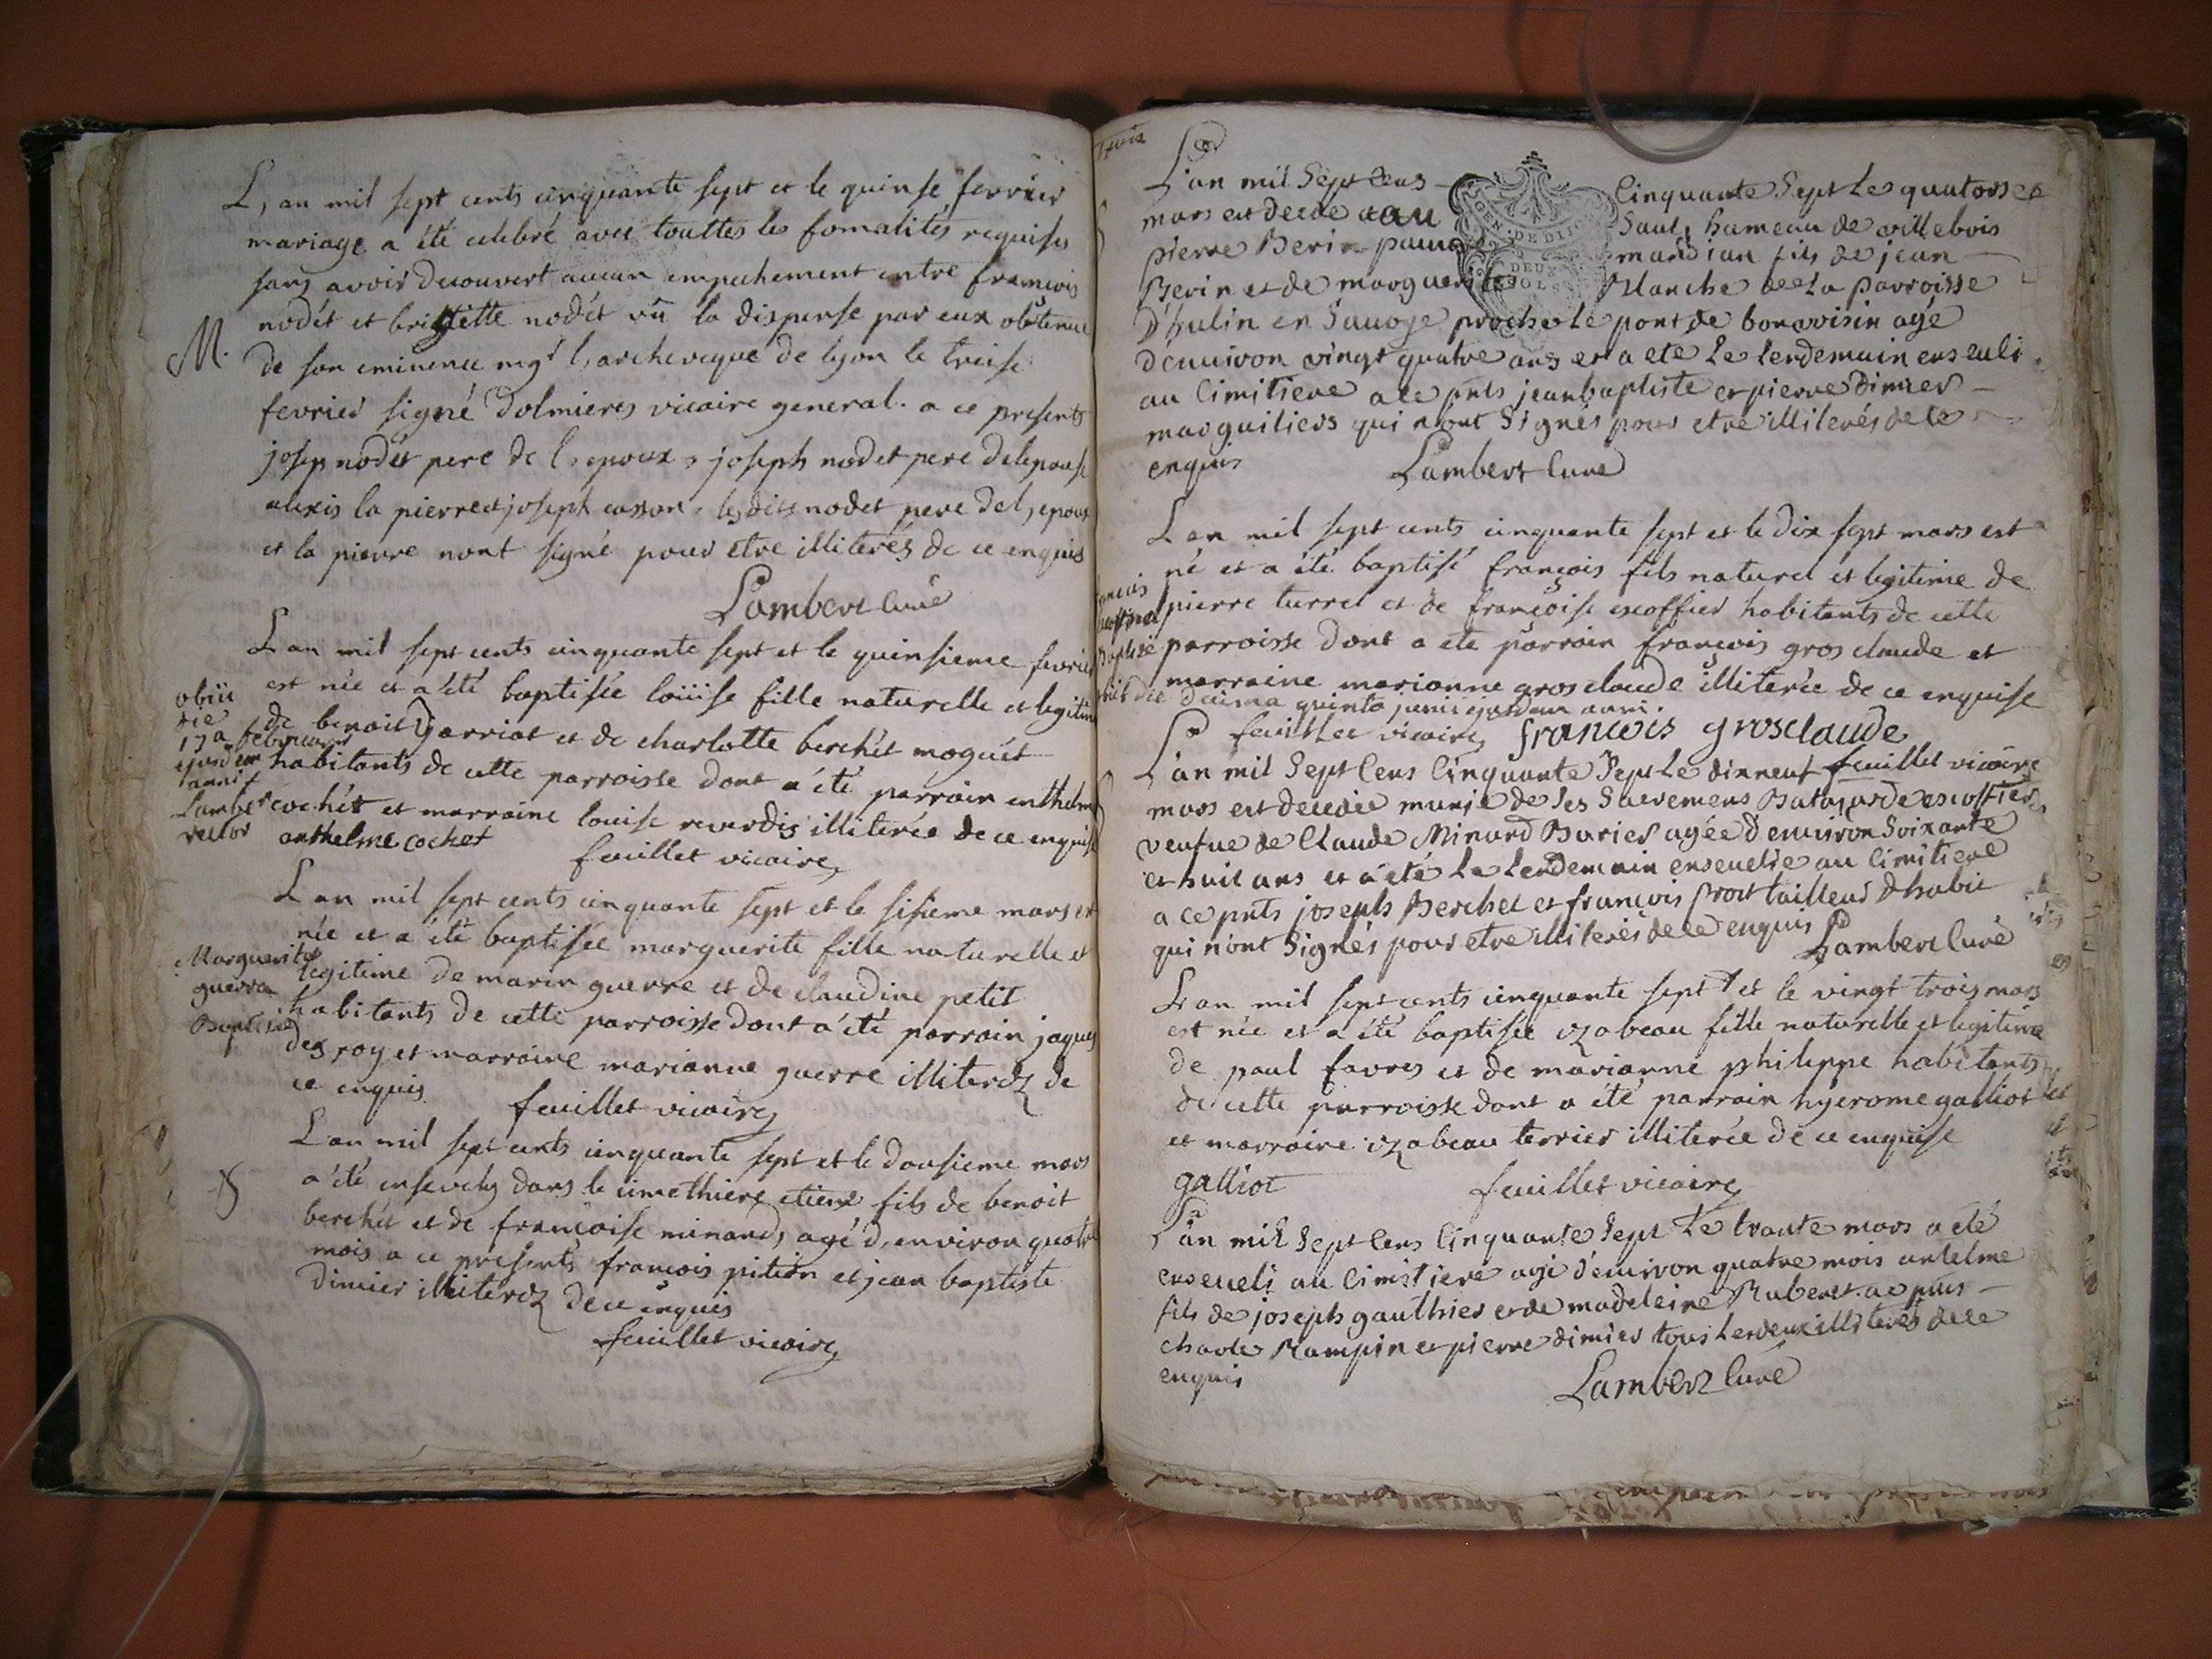 L, an mil sept cents cinquante sept et le quinse fevrier
mariage a été celebré avec touttes les fomalités requises
sans avoir decouvert aucun empechement entre francois
nodét et brigitte nodét vû la dispense par eux obtenue
M.
de son eminence mgr l, archeveque de lyon le treise
fevrier signé dolmieres vicaire general. a ce presents
josep nodét pere de l, epoux, joseph nodet pere delepouse
alexis la pierre et joseph casson, lesdits nodet pere del, epoux
et la pierre nont signé pour etre illiterés de ce enquis
Lambert Curé
L an mil sept cents cinquante sept et le quinsieme fevrier
est née et a été baptisée loüise fille naturelle et legitime
de benoit Garriot et de charlotte berchét moguét
habitants de cette parroisse dont a été parrain anthelme
cochét et marraine louise reverdis illiterée de ce enquise
obiit
die
17a februarii
ejusdem
anni
Lambert
rector
anthelme cochet
feuillet vicaire
L an mil sept cents cinquante sept et le sisieme mars est
née et a été baptisée marguerite fille naturelle et
legitime de marin guerre et de claudine petit
habitants de cette parroisse dont a été parrain jaques
des roy et marraine marianne guerre illiterez de
ce enquis
Marguerite
guerre
Baptisée
feuillet vicaire
L an mil sept cents cinquante sept et le dousieme mars
a été ensevely dans le cimethiere etiene fils de benoit
berchét et de francoise minard, agé d, environ quatre
mois a ce présents francois pition et jean baptiste
dimier illiterez de ce enquis
feuillet vicaire
L'an mil Sept Cens Cinquante Sept Le quatorse
mars est decede au Saut, hameau de villebois
pierre Berin pauvre mandian fils de jean
Berin et de marguerite Blanche de la parroisse
GEN. DE DIJON
DEUX SOLS
D'hulin en Savoye proche Le pont de bonavoisin agé
d'environ vingt quatre ans et a ete Le Lendemain enseveli
au Cimitiere a ce pnts jean baptiste et pierre dimier
marguiliers qui n'ont Signés pour etre illiterés de ce
enquis
Lambert Curé
L an mil sept cents cinquante sept et le dix sept mars est
né et a été baptisé françois fils naturel et legitime de
pierre turrel et de françoise escoffier habitants de cette
parroisse dont a ete parrain françois gros claude et
marraine marianne gros claude illiterée de ce enquise
decima quinta junii ejusdem anni
feuillet vicaire francois grosclaude
L'an mil Sept Cens Cinquante Sept Le dixneuf feuillet vicaire
mars est decedée munie de ses Sacremens escoffier
veufue de Claude Minard Buries agée d'environ Soixante
et huit ans et a été Le Lendemain ensevelie au Cimitiere
a ce pnts joseph Berchet et françois prost tailleur d habit
qui n'ont Signés pour etre illiterés de ce enquis
Lambert Curé
L an mil sept cents cinquante sept et le vingt trois mars
est née et a été baptisée izabeau fille naturelle et legitime
de paul favres et de marianne philippe habitants
de cette parroisse dont a été parrain hyerome galliot
et marraine izabeau terrier illiterée de ce enquise
galliot
feuillet vicaire
L'an mil Sept Cens Cinquante Sept Le trante mars a eté
enseveli au Cimitiere agé d'environ quatre mois antelme
fils de joseph gaulthier et de madeleine Rubenet a ce pnts
charle Rampin et pierre dimier tous Les deux illiterés de ce
enquis
Lambert Curé